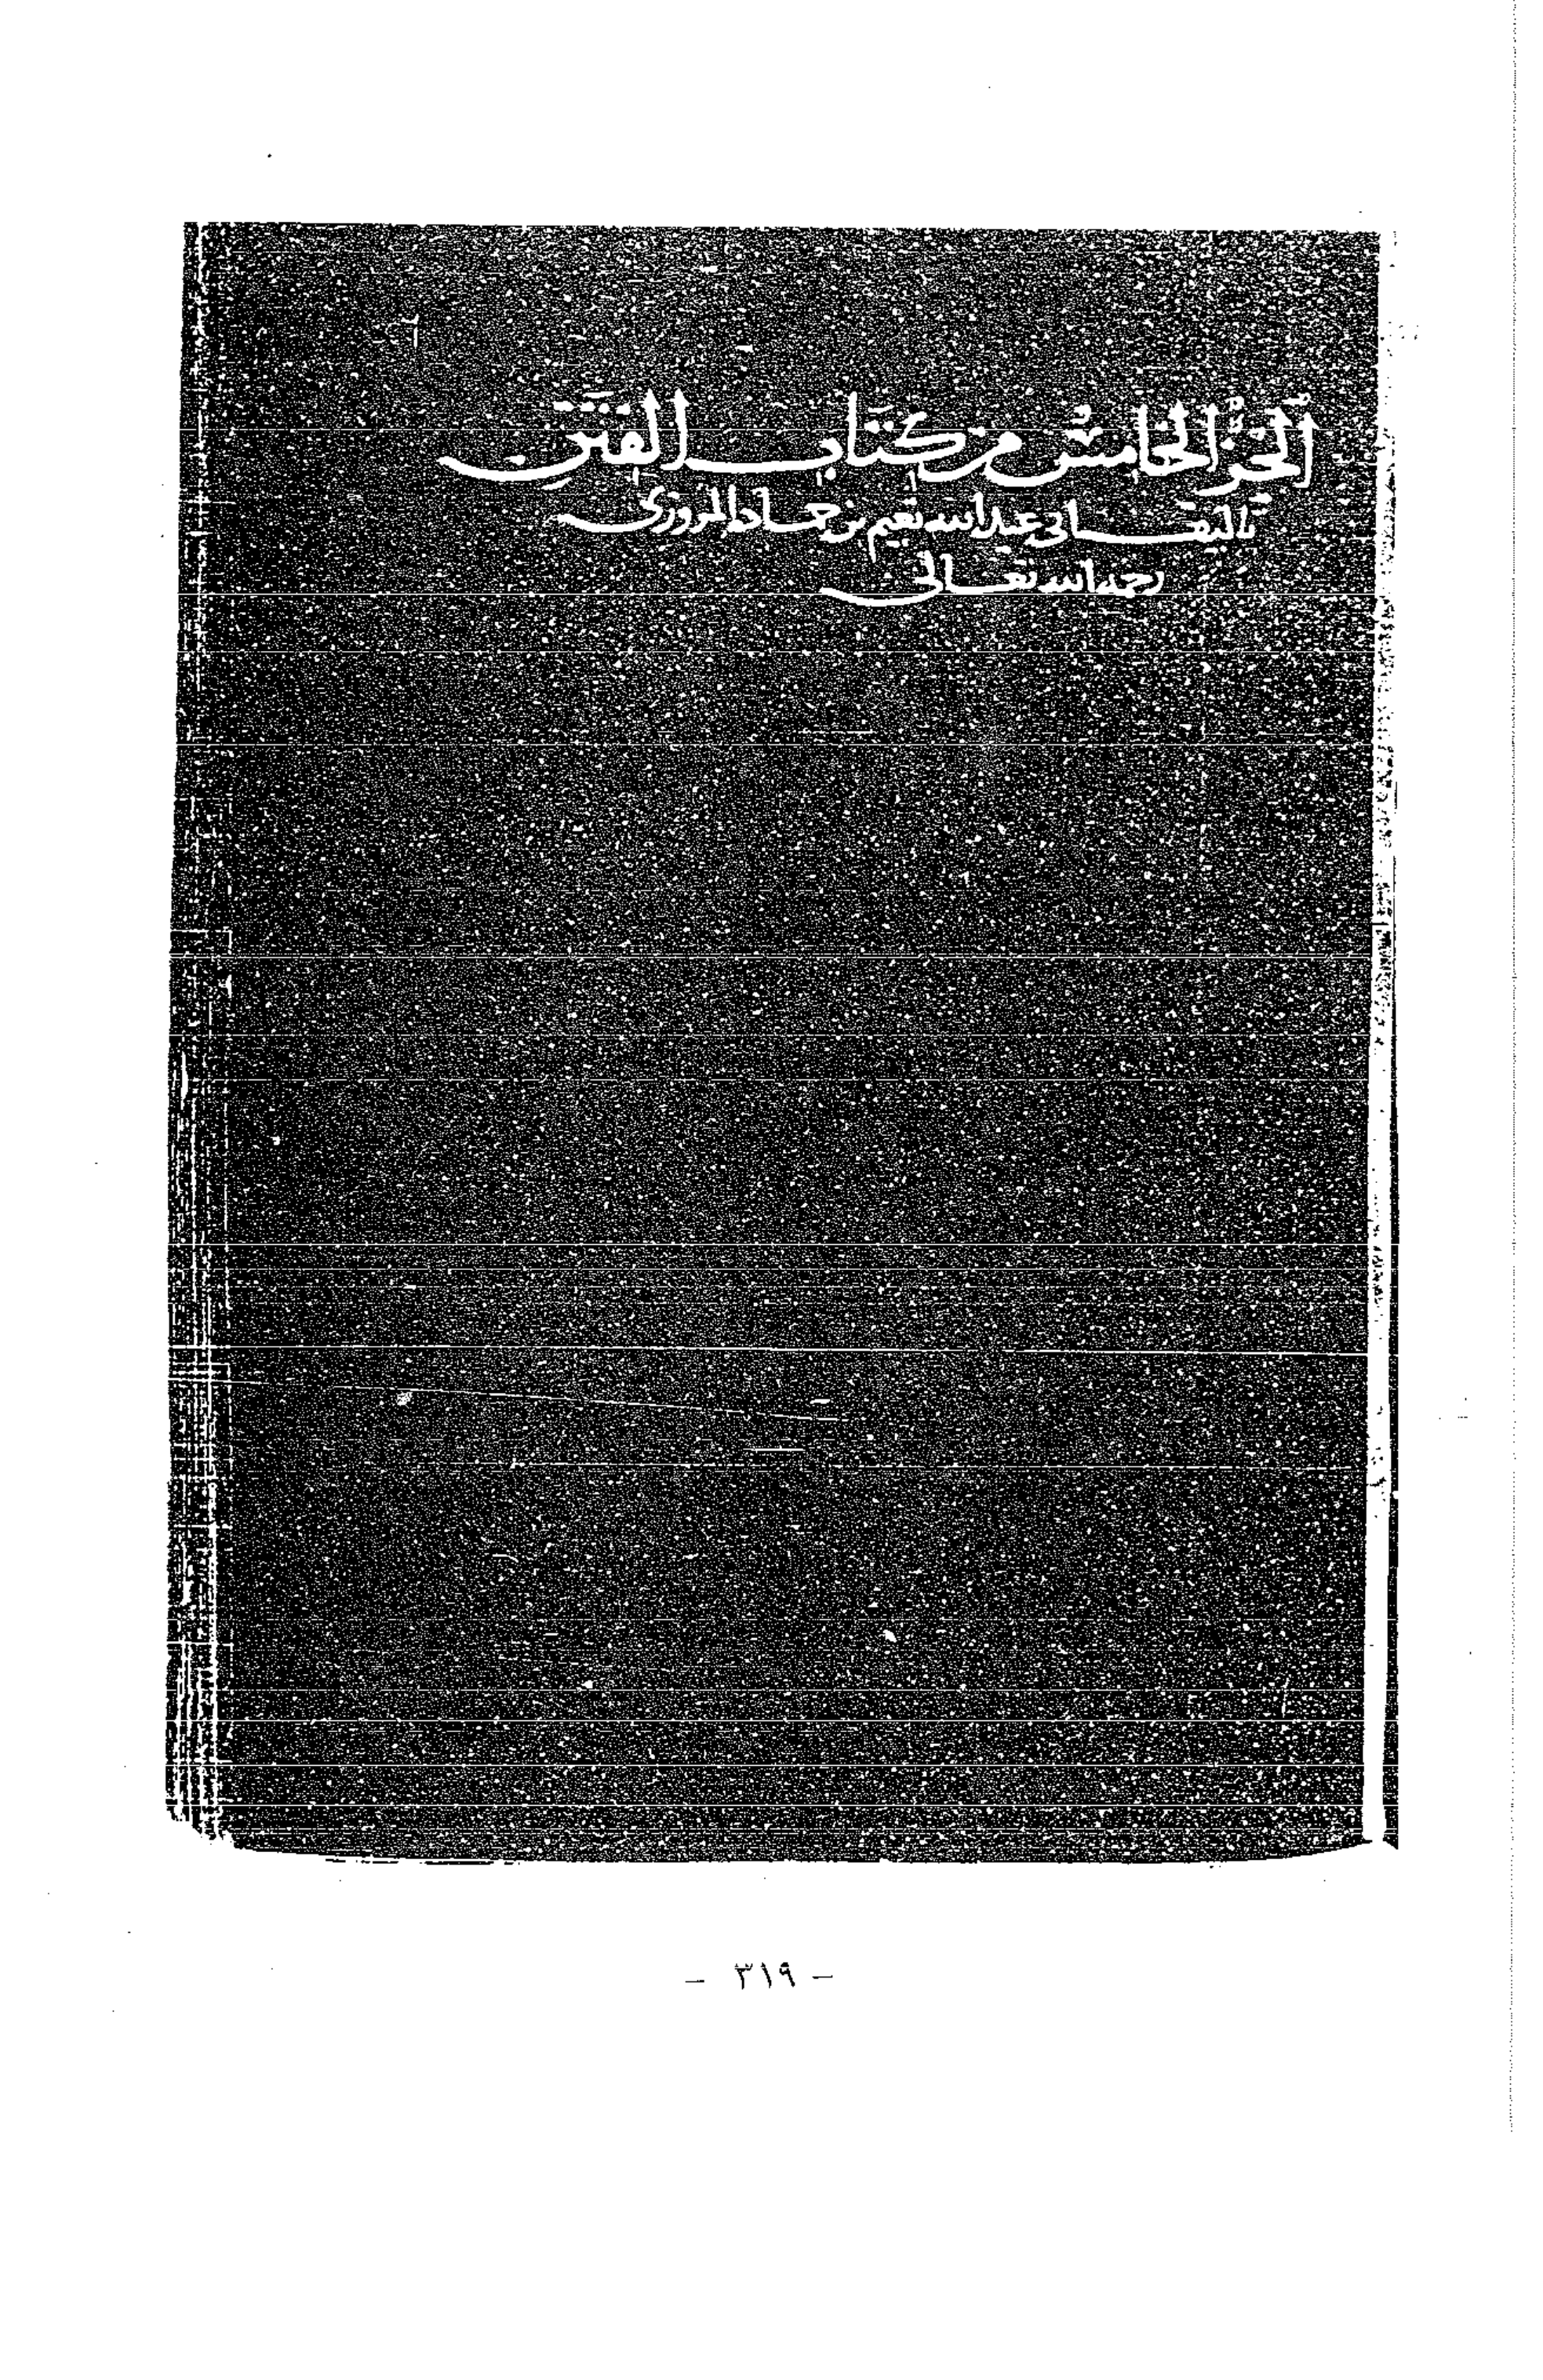 الجزء الخامس من كتاب الفتن
تاليف ابى عبد الله نعيم بن حماد المروزى
رحمه الله تعالى
- ٣١٩ -